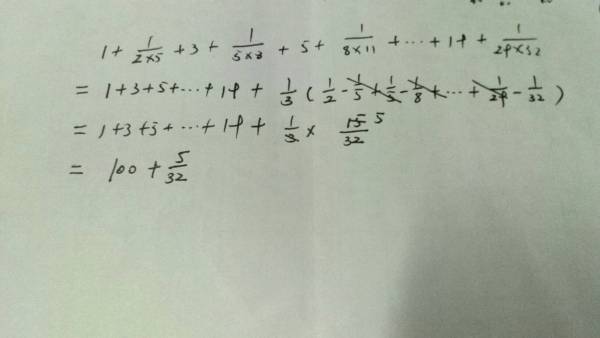 1 + 1/(2×5) + 3 + 1/(5×8) + 5 + 1/(8×11) + ⋯ + 19 + 1/(29×32)
= 1+3+5+⋯+19 + 1/3 ( 1/2 - 1/5 + 1/5 - 1/8 + ⋯ + 1/29 - 1/32 )
= 1+3+5+⋯+19 + 1/3 × 15/32 5
= 100 + 5/32